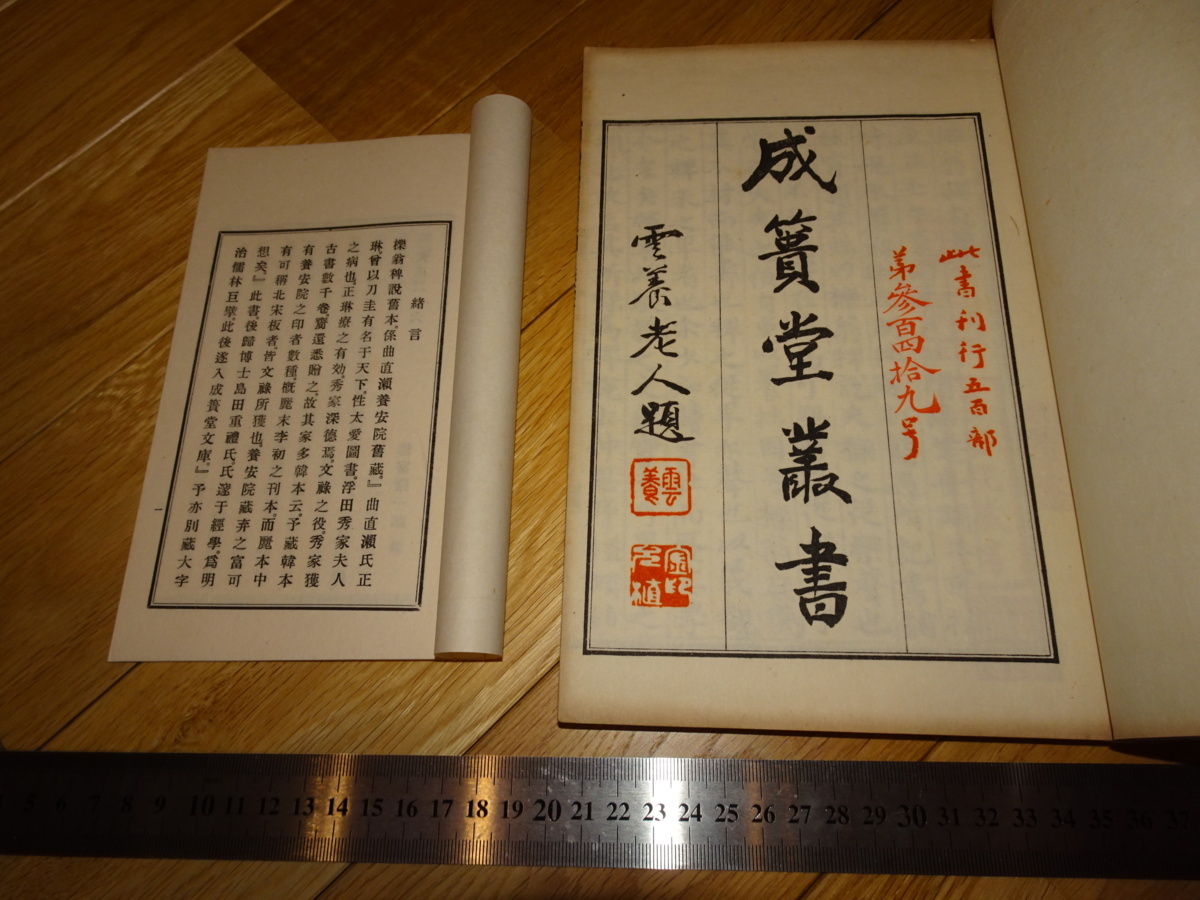 緒言
櫟翁稗說舊本、係曲直瀨養安院舊藏。』曲直瀨氏正
琳、曾以刀圭有名于天下、性太愛圖書、浮田秀家夫人
之病也、正琳療之有効、秀家深德焉、文祿之役、秀家獲
古書數千卷、齎還悉贈之、故其家多韓本云、予藏韓本
有養安院之印者數種、概麗末李初之刊本、而麗本中
有可稱北宋板者、皆文祿所獲也、養安院藏弆之富可
想矣。』此書後歸博士島田重禮氏、氏邃于經學、爲明
治儒林巨擘、此後遂入成簣堂文庫。』予亦別藏大字
一
此書刊行五百部
第參百四拾九号
成簣堂叢書
雲養老人題
雲養
金允植印
5 6 7 8 9 10 11 12 13 14 15 16 17 18 19 20 21 22 23 24 25 26 27 28 29 30 31 32 33 34 35 36 37